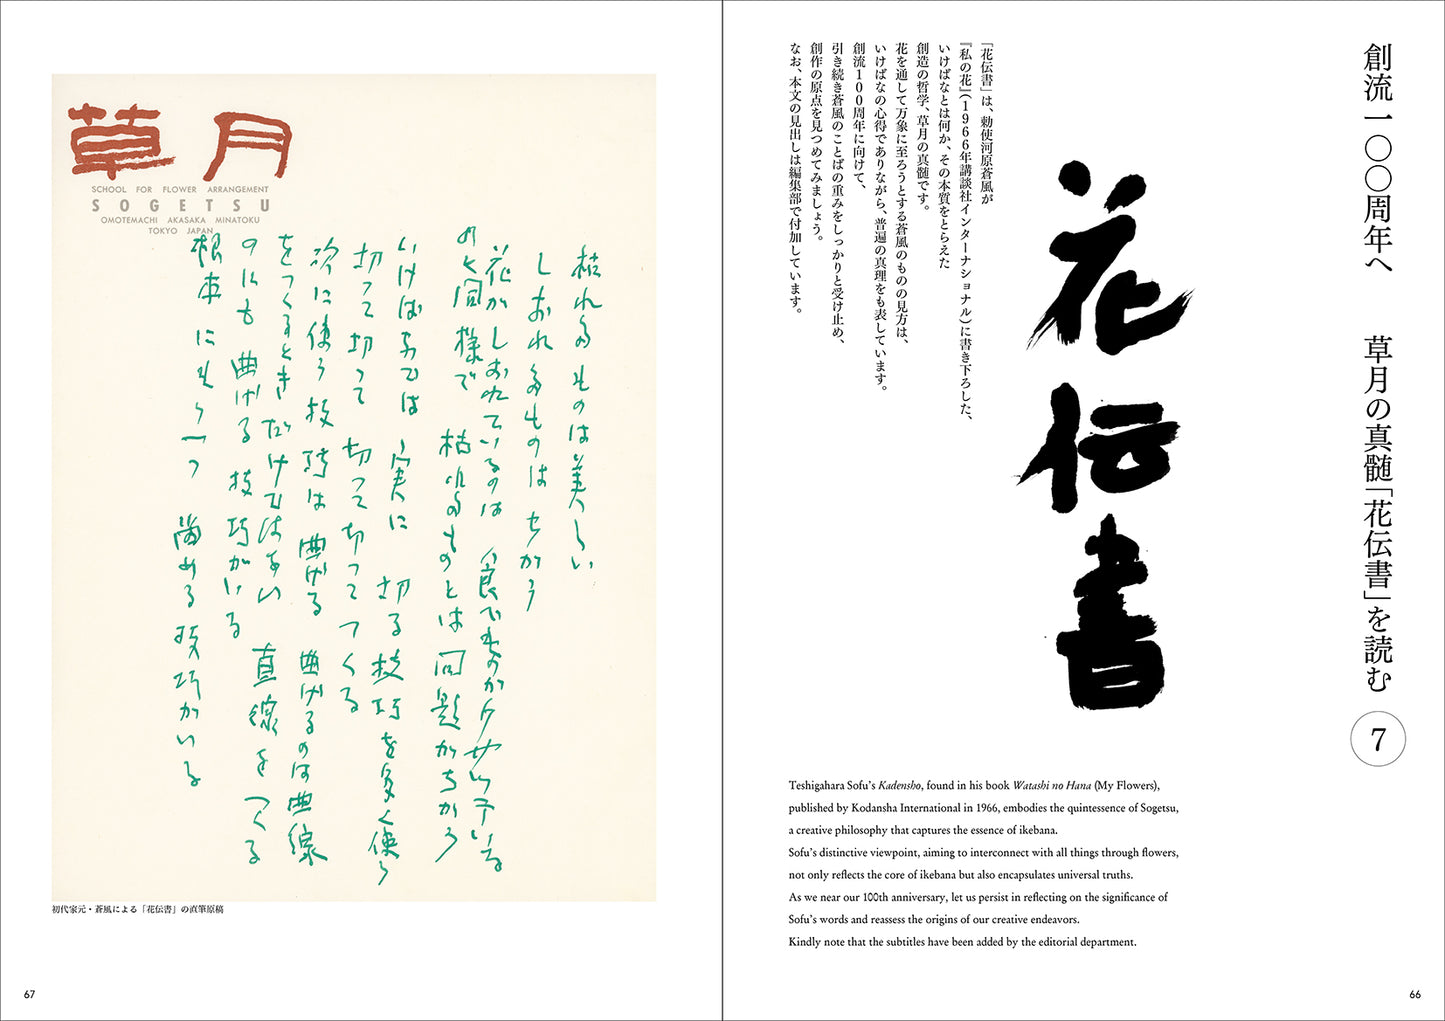 創流一〇〇周年へ　草月の真髄「花伝書」を読む
7
花伝書
「花伝書」は、勅使河原蒼風が
『私の花』(1966年講談社インターナショナル)に書き下ろした、
いけばなとは何か、その本質をとらえた
創造の哲学、草月の真髄です。
花を通して万象に至ろうとする蒼風のものの見方は、
いけばなの心得でありながら、普遍の真理をも表しています。
創流100周年に向けて、
引き続き蒼風のことばの重みをしっかりと受け止め、
創作の原点を見つめてみましょう。
なお、本文の見出しは編集部で付加しています。
Teshigahara Sofu's Kadensho, found in his book Watashi no Hana (My Flowers),
published by Kodansha International in 1966, embodies the quintessence of Sogetsu,
a creative philosophy that captures the essence of ikebana.
Sofu's distinctive viewpoint, aiming to interconnect with all things through flowers,
not only reflects the core of ikebana but also encapsulates universal truths.
As we near our 100th anniversary, let us persist in reflecting on the significance of
Sofu's words and reassess the origins of our creative endeavors.
Kindly note that the subtitles have been added by the editorial department.
66
草月
SCHOOL FOR FLOWER ARRANGEMENT
SOGETSU
OMOTEMACHI AKASAKA MINATOKU
TOKYO JAPAN
枯れたものは美しい
しおれたものはちがう
花がしおれているのは
の と同様で 枯れたものとは問題がちがう
いけばなでは 実に 切る技巧を多く使う
切って切って 切って切ってつくる
次に使う技巧は 曲げる 曲げるのは曲線
をつくるときだけではない 直線をつくる
のにも 曲げる技巧がいる
根本にもう一つ 溜める技巧がいる
初代家元・蒼風による「花伝書」の直筆原稿
67